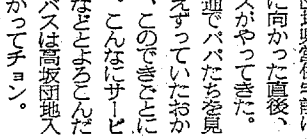 に向かった直後、
スがやってきた。
通でパパたちを見
えずっていたおか
、このできごとに
。こんなにサービ
などとよろこんだ
バスは高坂団地入
かってチョン。